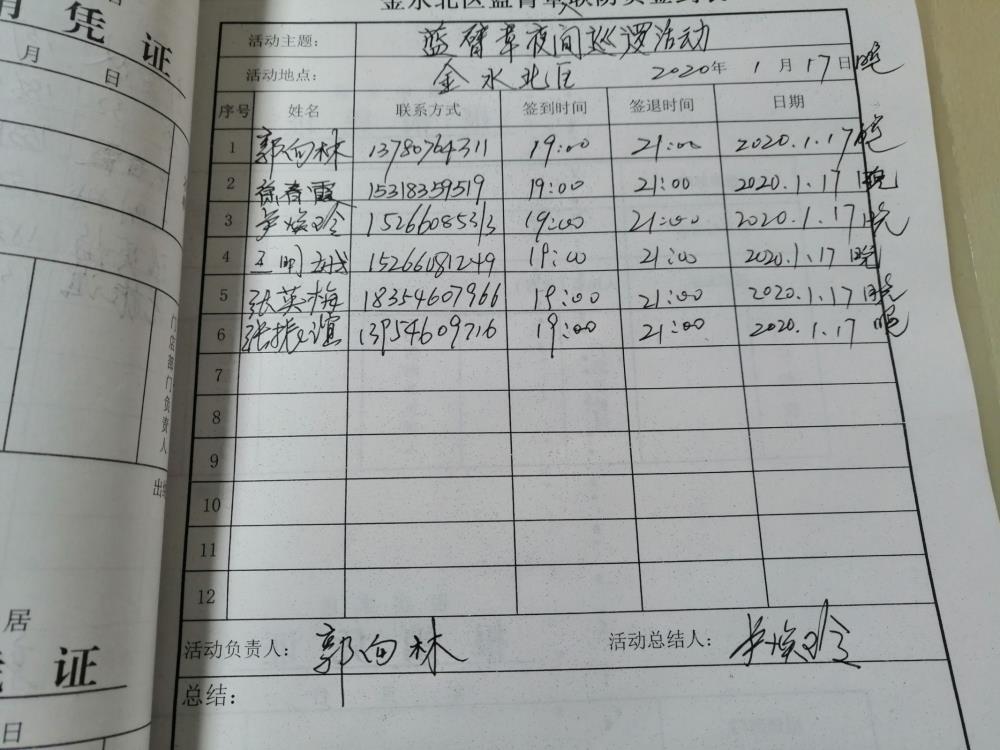 金水北区蓝臂章联防员签到表
活动主题： 蓝臂章夜间巡逻活动
活动地点： 金水北区 2020年 1月17日晚
序号 姓名 联系方式 签到时间 签退时间 日期
1 郭向林 13780764311 19:00 21:00 2020.1.17晚
2 徐春霞 15318359519 19:00 21:00 2020.1.17晚
3 李焕玲 15266085313 19:00 21:00 2020.1.17晚
4 王明 15266081249 19:00 21:00 2020.1.17晚
5 张英梅 18354607966 19:00 21:00 2020.1.17晚
6 张振谊 13954609716 19:00 21:00 2020.1.17晚
7
8
9
10
11
12
活动负责人： 郭向林 活动总结人： 李焕玲
总结：
凭证
月 日
门店部门负责人
出纳
居
证
日